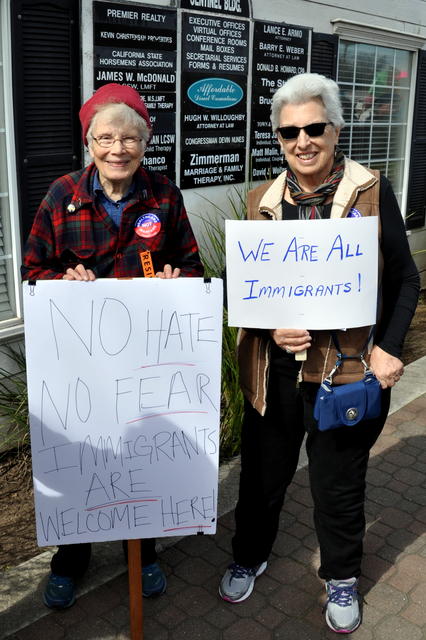 SENTINEL BLDG.
PREMIER REALTY
CALIFORNIA STATE
HORSEMENS ASSOCIATION
JAMES W. McDONALD
EXECUTIVE OFFICES
VIRTUAL OFFICES
CONFERENCE ROOMS
MAIL BOXES
SECRETARIAL SERVICES
FORMS & RESUMES
Affordable
HUGH W. WILLOUGHBY
ATTORNEY AT LAW
CONGRESSMAN DEVIN NUNES
Zimmerman
MARRIAGE & FAMILY
THERAPY, INC.
LANCE E. ARMO
ATTORNEY AT LAW
BARRY E. WEBER
ATTORNEY AT LAW
DONALD B. HOWARD, CPA
NO HATE
NO FEAR
IMMIGRANTS
ARE
WELCOME HERE!
WE ARE ALL
IMMIGRANTS!